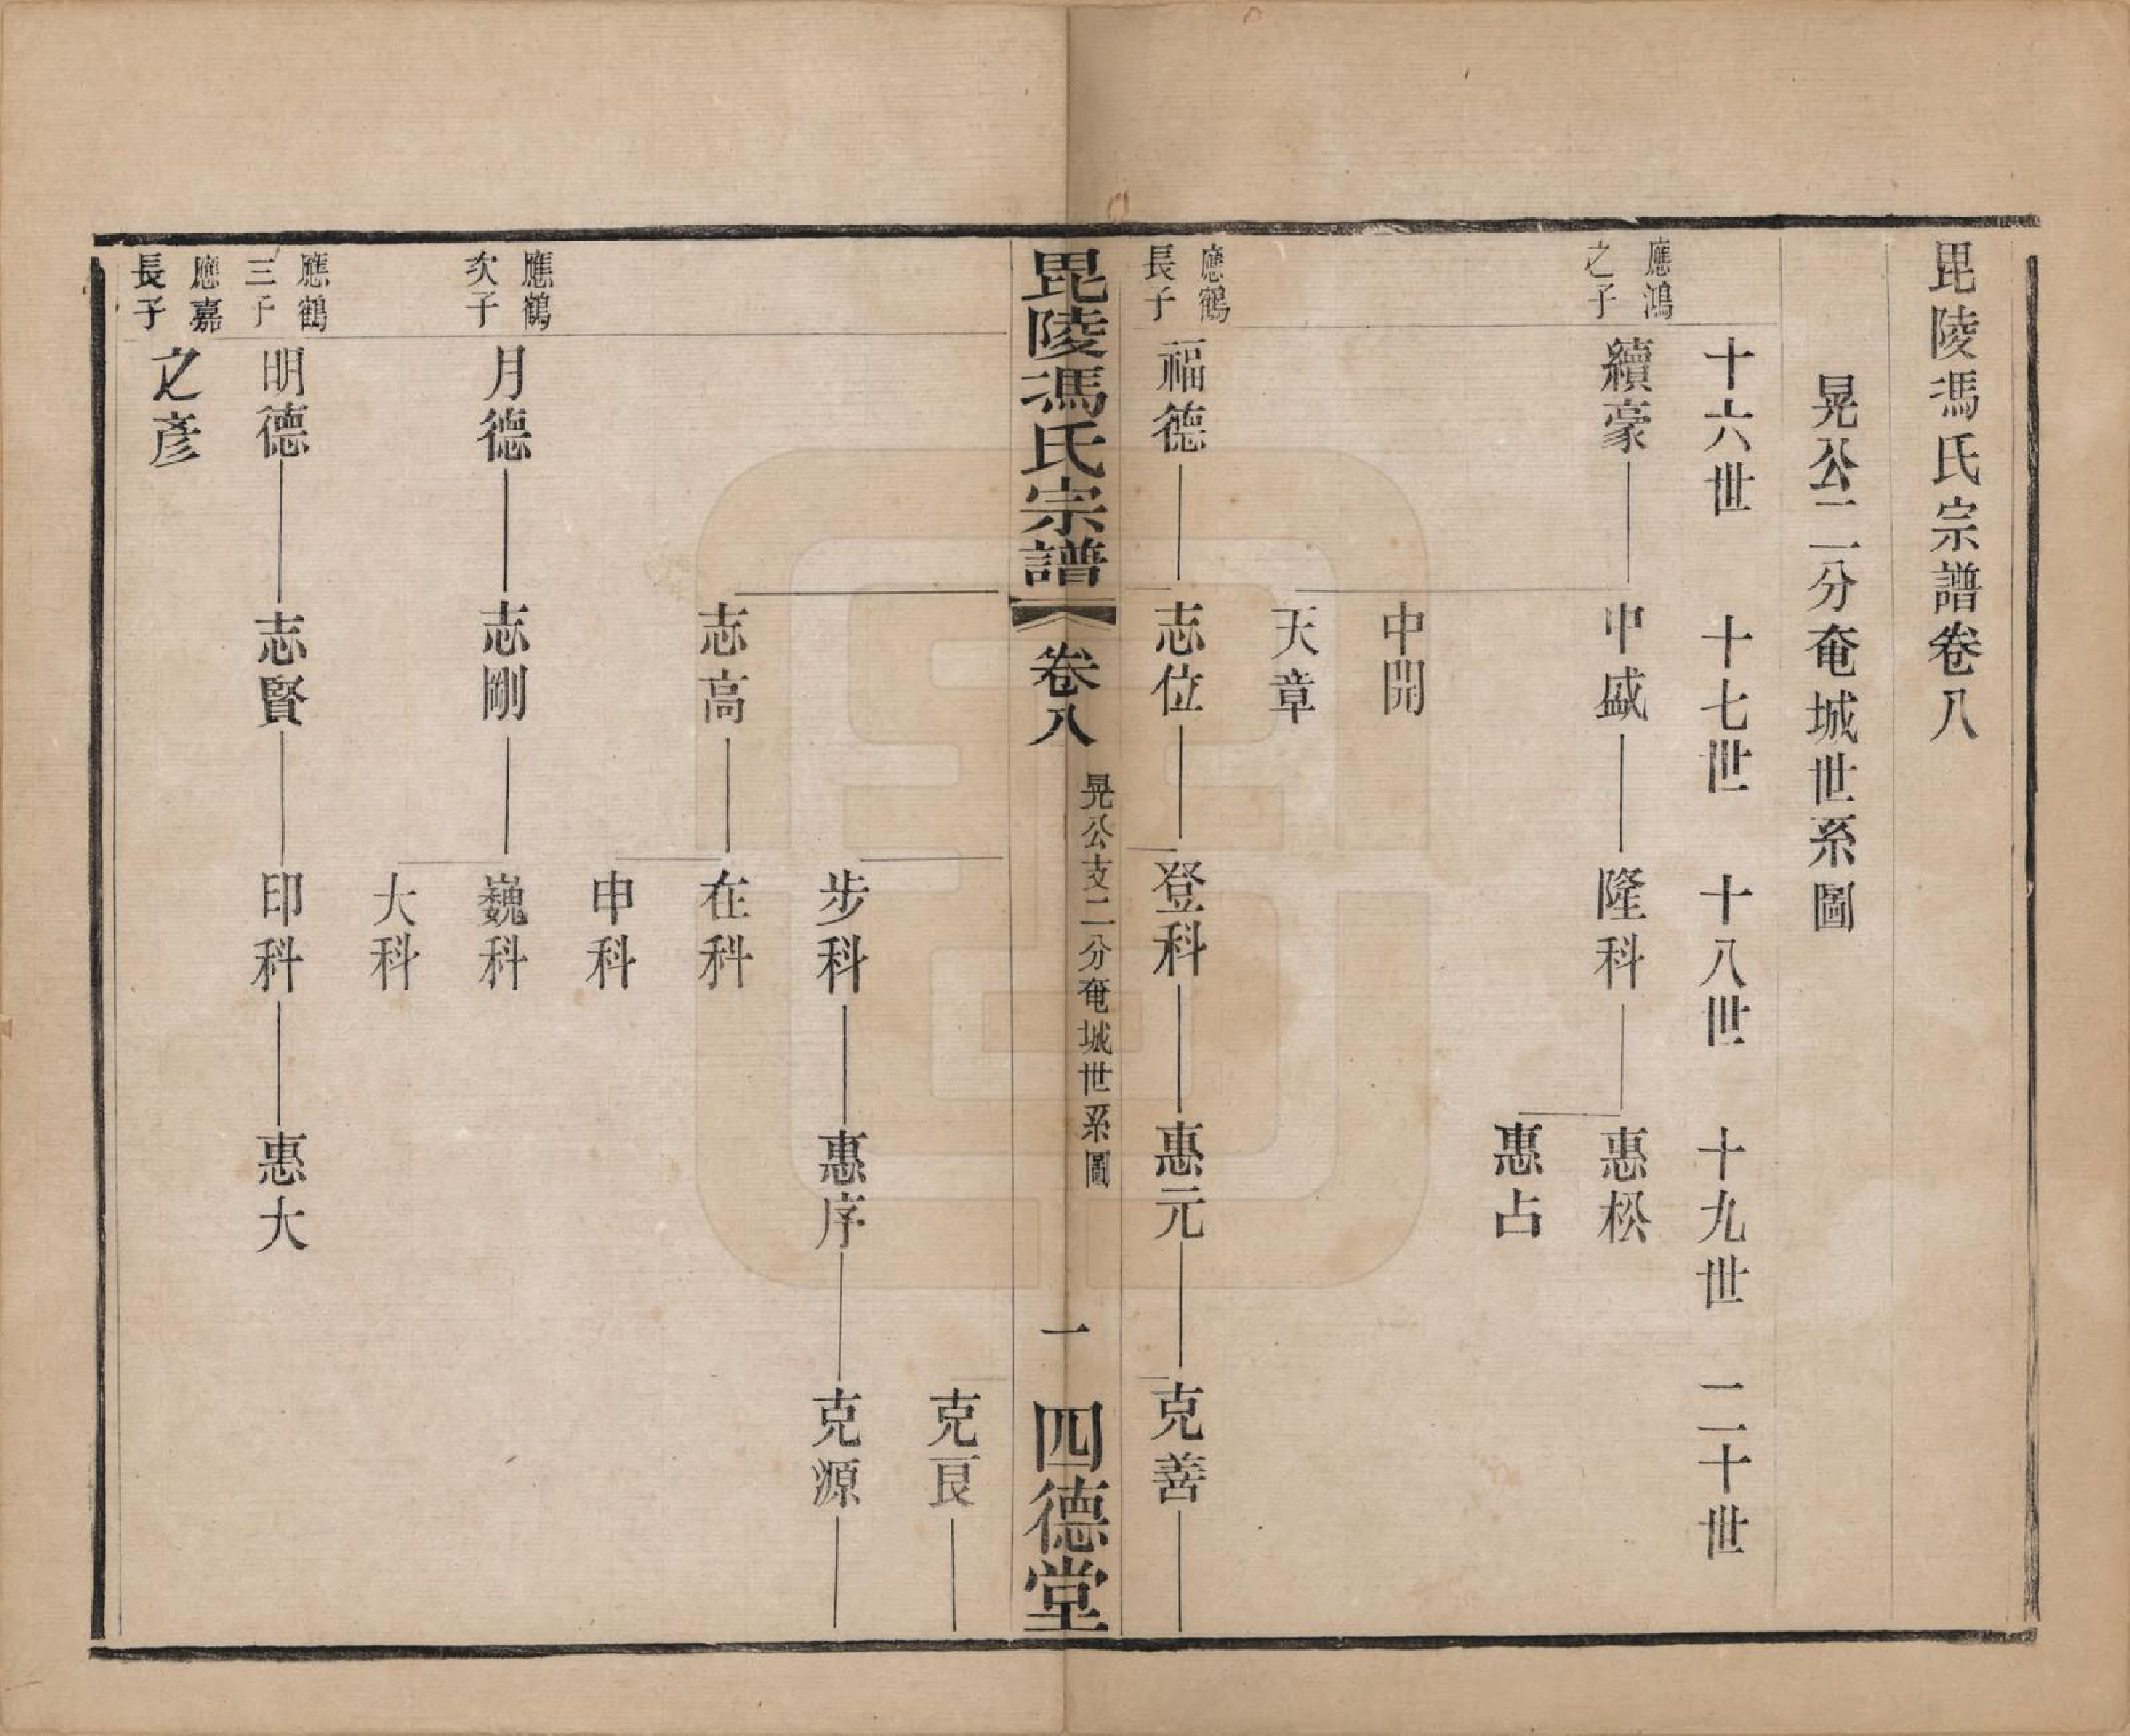 毘陵馮氏宗譜卷八
晃公二分奄城世系圖
十六世 十七世 十八世 十九世 二十世
應鴻
之子
續豪 中盛 隆科 惠松
惠占
中開
天章
應鶴
長子
福德 志位 登科 惠元 克善
毘陵馮氏宗譜 卷八 晃公支二分奄城世系圖 一 四德堂
克艮
步科 惠序 克源
志高 在科
申科
應鶴
次子
月德 志剛 巍科
大科
應鶴
三子
明德 志賢 印科 惠大
應嘉
長子
之彥